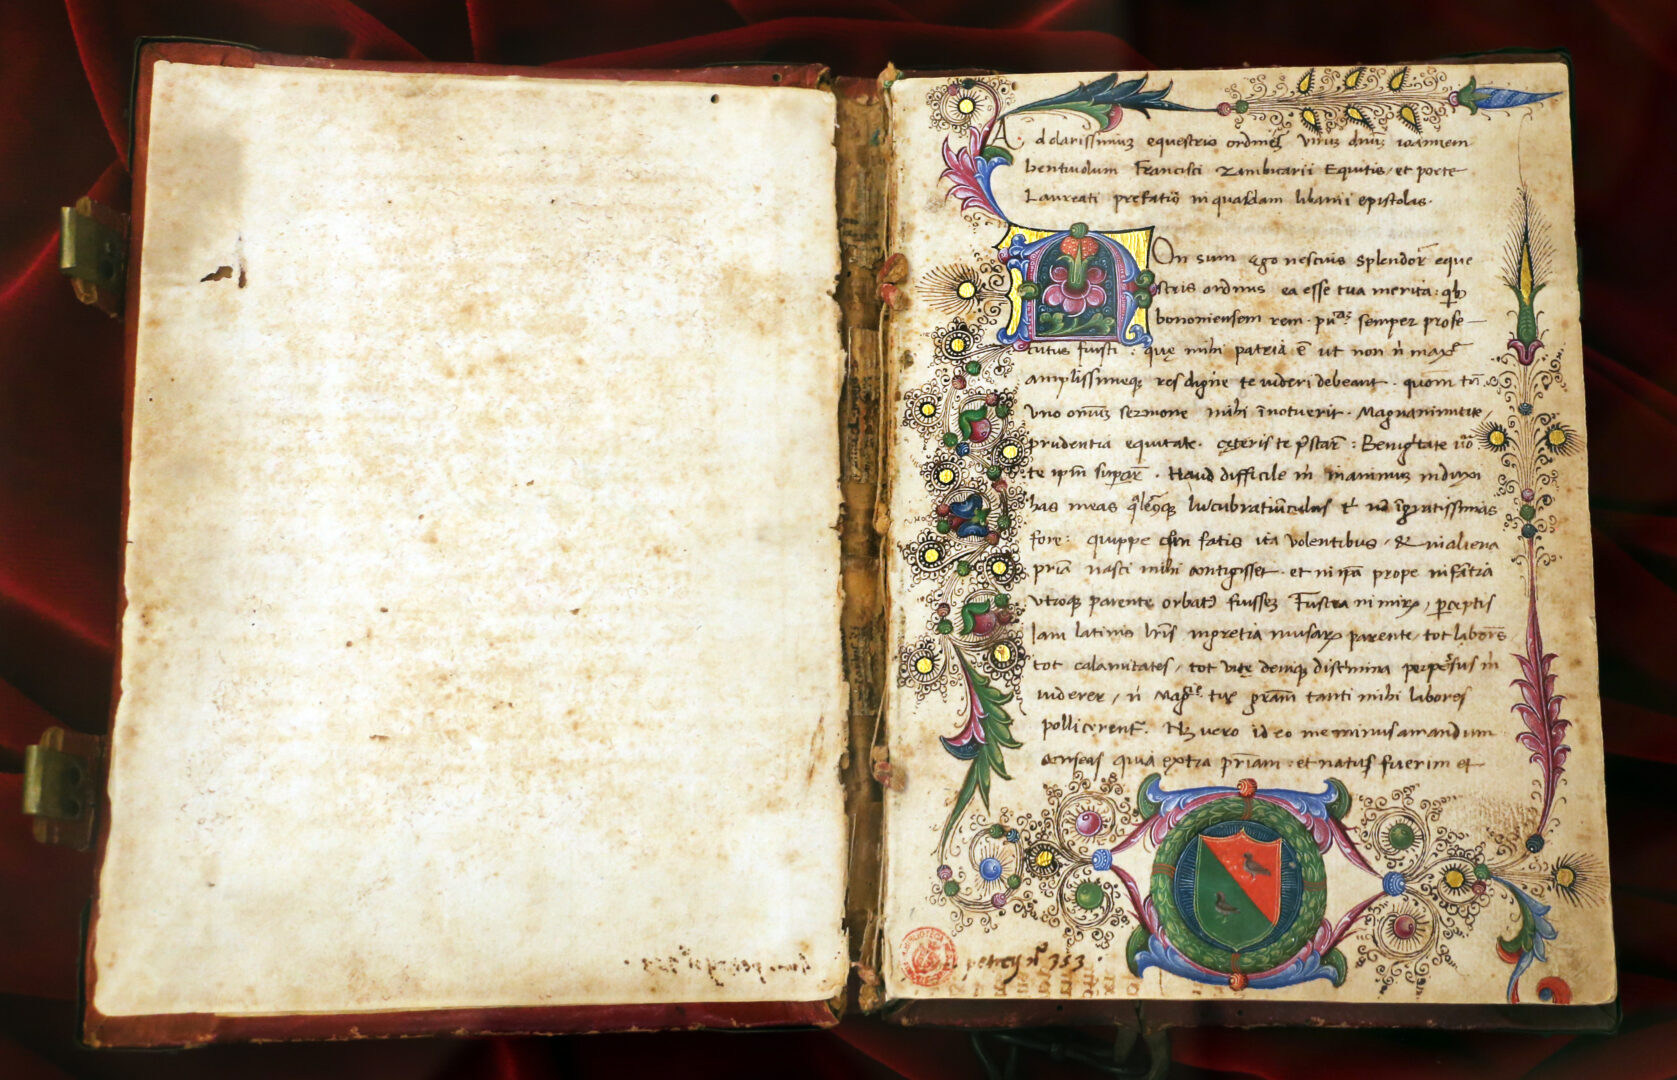 Ad clarissimuȝ equestris ordinis virum dnȝ ioannem
bentiuolum Francisci Zambicarii Equitis, et poete
Laureati prefatio in quasdam libanii epistolas.
Non sum ego nescius splendor̃ eque
stris ordinis ea esse tua merita: qb
bononiensem rem. semper prose-
cutus fuisti: quę mihi patria ẽ ut non ñ maxᵉ
amplissimeqȝ res digne te uideri debeant. quom tñ.
vno omniũ sermone mihi ĩnotuerit. Magnanimitate,
prudentia equitate. cęteris te p̃star̃: Benigtate uõ
te ipm̃ supar̃. Haud difficile m̃ in animuȝ induxi
has meas lucubratiũculas ĩgratissimas
fore: quippe cũ fatis ita volentibus, & in aliena
priã nasci mihi contigisset. et in ipã prope infãtia
vtroqȝ parente orbatȝ fuisseȝ Frustra ni mirȝ, pceptis
Iam latinis lrĩs in gretia musarȝ parente, tot labores
tot calamitates, tot vitę deniqȝ discrimina perpessus m̃
uiderer, ñ tuę grãm tanti mihi labores
pollicerentʳ. Nȝ uero ideo me minus amandum
censeas quia extra priãm: et natus fuerim et
BIBLIOTECA
petrcij nº 353.